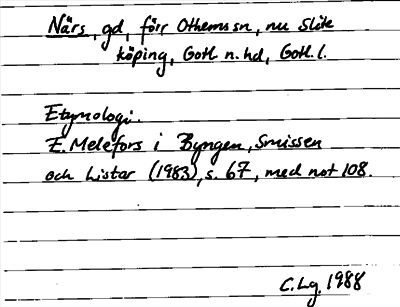 Närs, gd, förr Othems sn, nu Slite
köping, Gotl. n. hd, Gotl. l.
Etymologi.
E. Melefors i Byngen, Smissen
och Listar (1983), s. 67, med not 108.
C. Lg. 1988